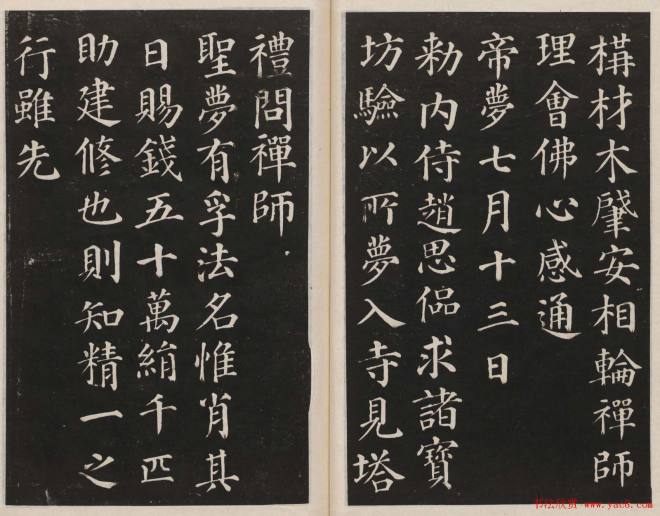 構材木肇安相輪禪師
理會佛心感通
帝夢七月十三日
勅内侍趙思偘求諸寶
坊驗以所夢入寺見塔
禮問禪師
聖夢有孚法名惟肖其
日賜錢五十萬絹千匹
助建修也則知精一之
行雖先
书法欣赏 www.yac8.com